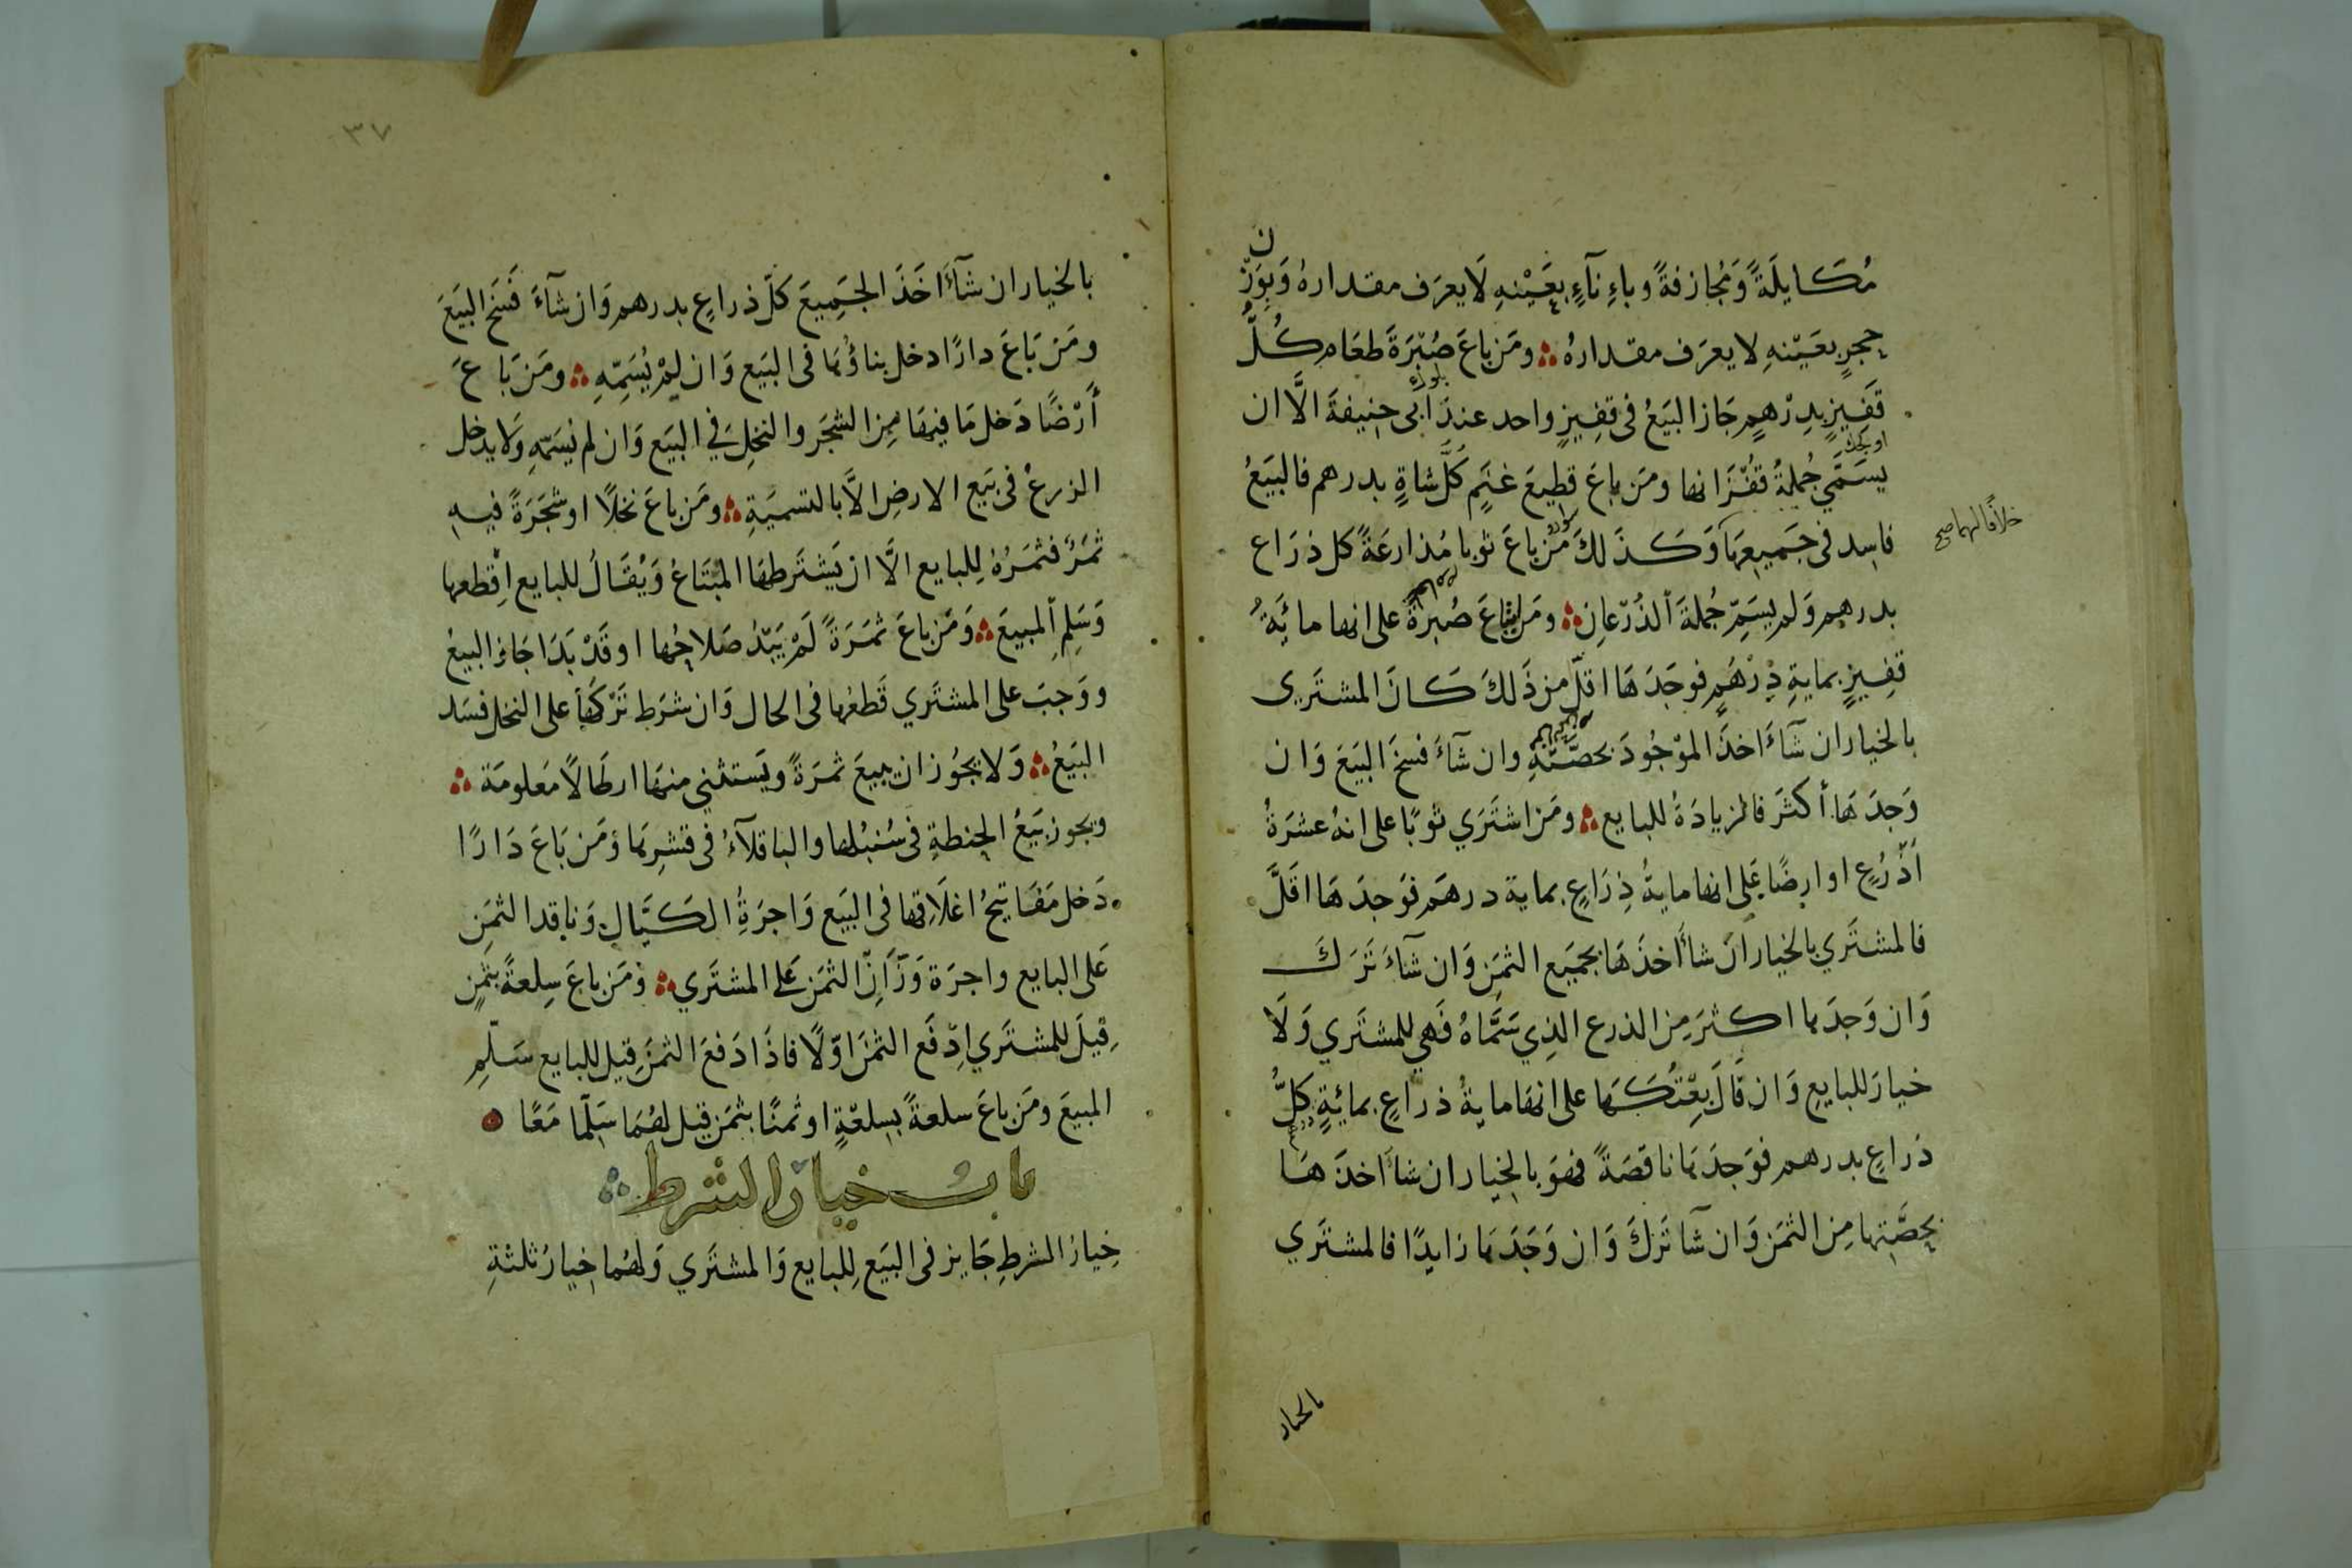 مُكَايلَةً وَمُجازفةً وباءِنآءٍ بعَيْنهِ لَا يعرَف مقدارهُ وَبِوَزْن
حجرٍ بعَيْنهِ لا يعرَف مقدارهُ ؞ ومَن باعَ صُبْرَةَ طعَامٍ كُلَّ
قَفِيزٍ بدِرْهمٍ جَاز البيَعُ فى قفِيزٍ واحد عندَ ابى حنيفةَ الَّا ان
يسَمّي جُملةَ قفْزَانها ومَن باعَ قطيعَ غنَمٍ كلَّ شاةٍ بدرهم فالبيَعُ
فاسِد فى جَميعِهَا وَكَذلكَ مَن باعَ ثوبا مُذارعَةً كل ذرَاع
خلافًا لهما صح
بدرهمٍ وَلم يسَمِّ جُملةَ الذُرْعانِ ؞ ومَن ابتَاعَ صُبرةً على انها مائَةُ
قفِيزٍ بمايةِ دِرْهَمٍ فوجَدَهَا اقلّ من ذَلكَ كَانَ المشترى
بالخيار ان شَآءَ اخذَ الموْجُودَ بحصّتهِ وان شَآءَ فسخَ البيَعَ وَان
وَجدَهَا أكثَرَ فالزيادَةُ للبايع ؞ ومَن اشتَرَي ثوبًا على انهُ عشرَةُ
أذْرُعٍ او ارضًا عَلى انها مايةُ ذِرَاعٍ بماية درهَم فوَجدَهَا اقَلَّ
فالمشتَري بالخيار ان شاءَ اخذَهَا بجميَع الثمَن وَان شآءَ تَرَكَ
وَان وَجدَها اكثرَ مِن الذرع الذِي سَمَّاهُ فَهي للمشتَري وَلَا
خيارَ للبايع وَان قَالَ بعْتُكَهَا على انهَا مايةُ ذراعٍ بمائةٍ كلُّ
ذرَاعٍ بدرهم فوَجدَهَا ناقصَةً فهوَ بالخِيار ان شاءَ اخذَهَا
بحصَّتها مِن الثمَن وَان شآ تَركَ وَان وَجَدَهَا زايدًا فالمشتَري
بالخيار
٣٧
بالخيار ان شآءَ اخَذَ الجَميعَ كلّ ذراعٍ بدرهم وَان شآءَ فَسَخ البيَعَ
ومَن بَاعَ دارًا دخل بناؤُهَا فى البيَع وَان لمْ يُسَمِّهِ ؞ ومَن بَاعَ
أَرْضًا دَخل مَا فيهَا مِن الشجَر والنخلِ في البيَع وَان لم يسَمّهِ وَلا يدخل
الزرعُ فى بَيع الارضِ الَّا بالتسميَةِ ؞ ومَن باعَ نخلًا او شجَرَةً فيهِ
ثمَرٌ فثمَرُهُ لِلبايع الَّا ان يَشتَرطهَا المُبْتَاعُ وَيُقَالُ للبايع اِقْطعها
وَسَلِم المبيعَ ؞ وَمَن باعَ ثمَرَةً لَمْ يَبْدُ صَلاحُها او قَدْ بَدَا جَازَ البيعُ
ووَجبَ على المشتَري قَطعُها فى الحال وَان شرَط تَرْكَهَا على النخل فسَد
البَيعُ ؞ وَلا يَجُوز ان يبيعَ ثمرَةً ويَستثني منهَا ارطَالًا مَعلومَة ؞
ويجوز بيَعُ الحنطةِ فى سُنبُلها والباقلآءُ فى قشرِهَا وَمَن بَاعَ دَارًا
دَخل مَفَاتيحُ اغلَاقها فى البيَع وَاجرَةُ الكَيَّالِ وَناقدِ الثمَن
عَلى البايع واجرَة وَزَّانِ الثمَن عَلى المشتَري ؞ وَمَن باعَ سِلعةً بثمَنٍ
قيلَ للمشتَري اِدْفَع الثمنَ اوّلًا فاذَا دَفعَ الثمنَ قِيل للبايع سَلّمِ
المبيعَ ومَن باعَ سلعةً بسِلعَةٍ او ثمنًا بثمَن قيل لهُمَا سَلّمَا مَعًا
باب خيار الشرط
خِيارُ الشرطِ جَايز فى البيَع لِلبايع وَالمشتَري وَلهُما خِيارُ ثلثةِ